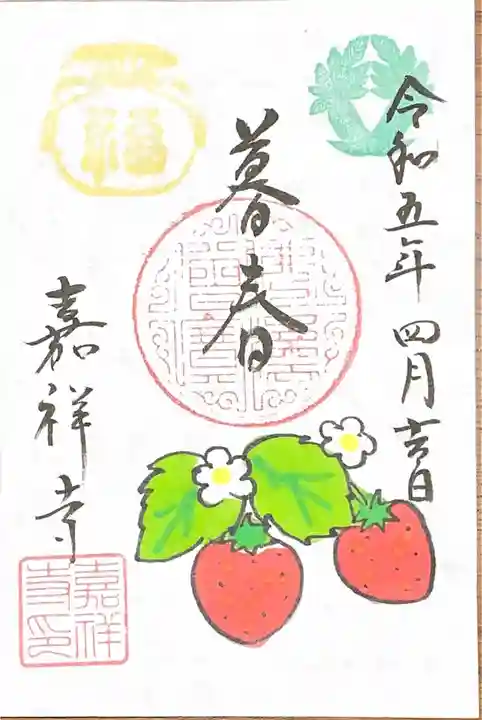 令和五年四月吉日
暮春
福
嘉祥寺
嘉祥寺印